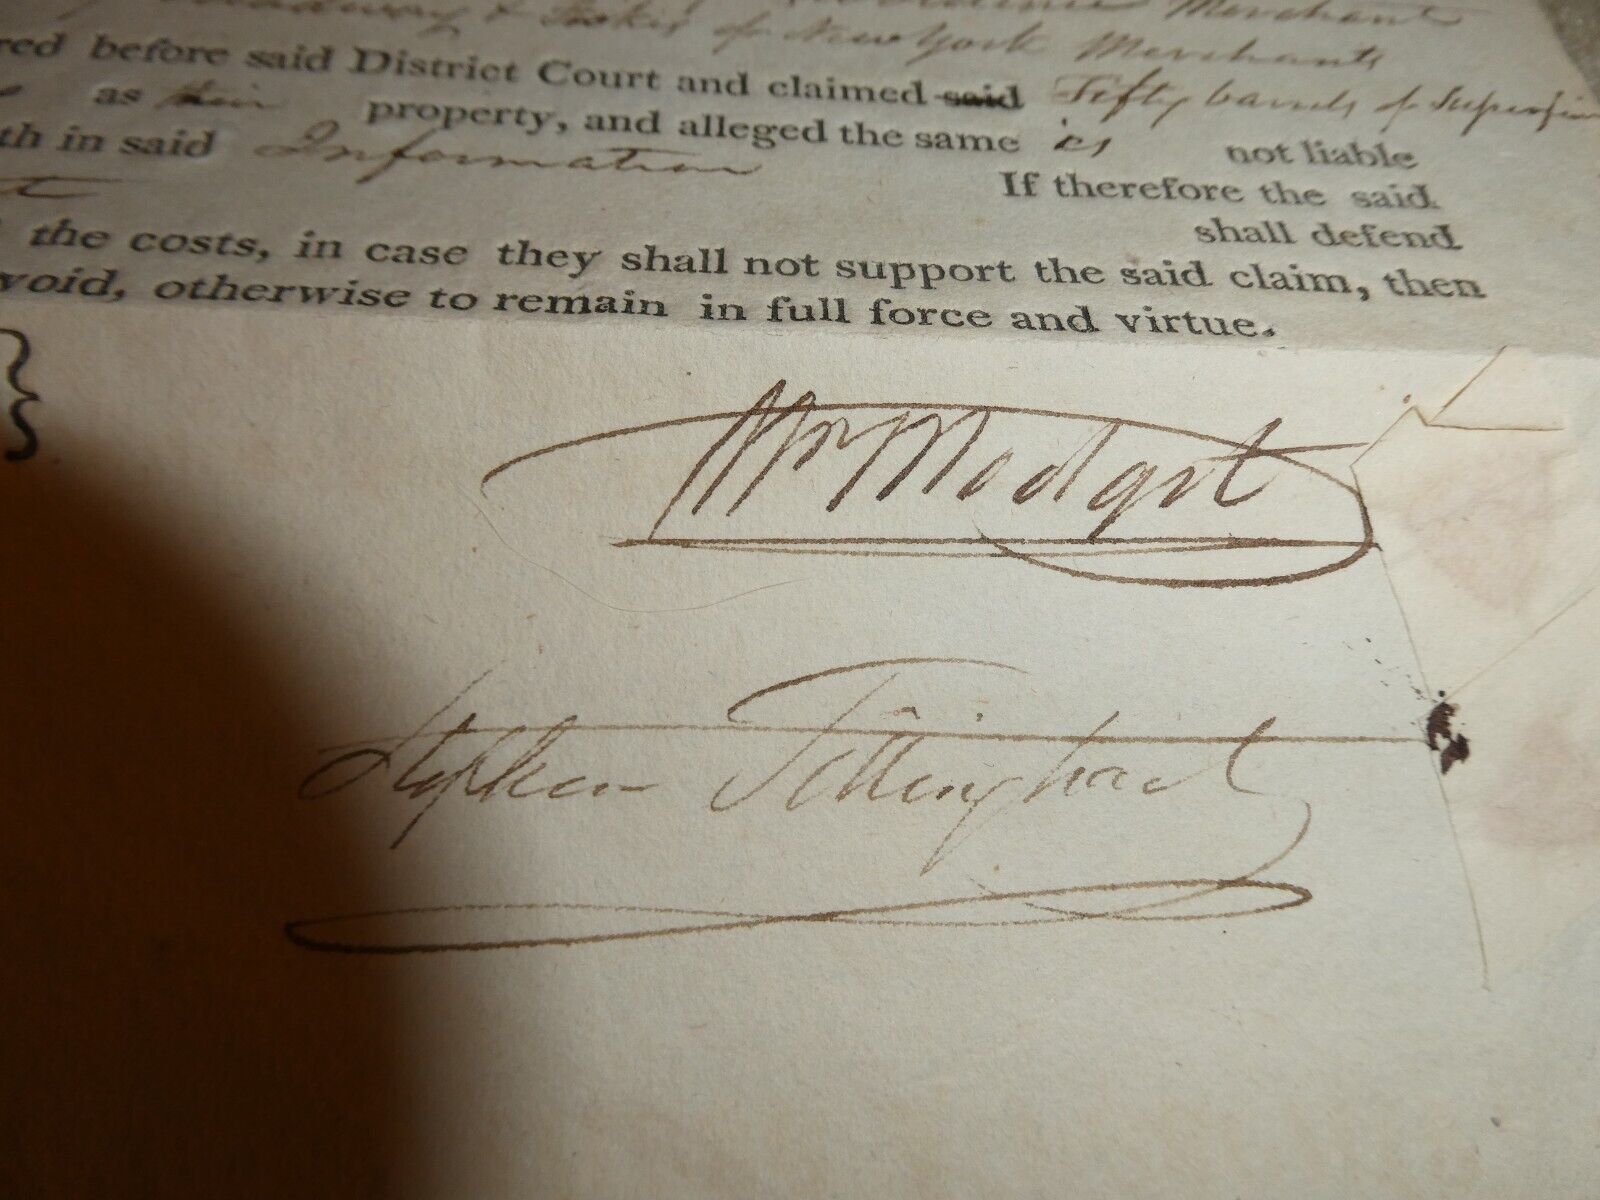 Merchant
of New York Merchants
red before said District Court and claimed said Fifty barrels of Superfine
as their property, and alleged the same is not liable
th in said Information If therefore the said
shall defend
the costs, in case they shall not support the said claim, then
void, otherwise to remain in full force and virtue.
Wm Modgit
Stephen Tillinghast